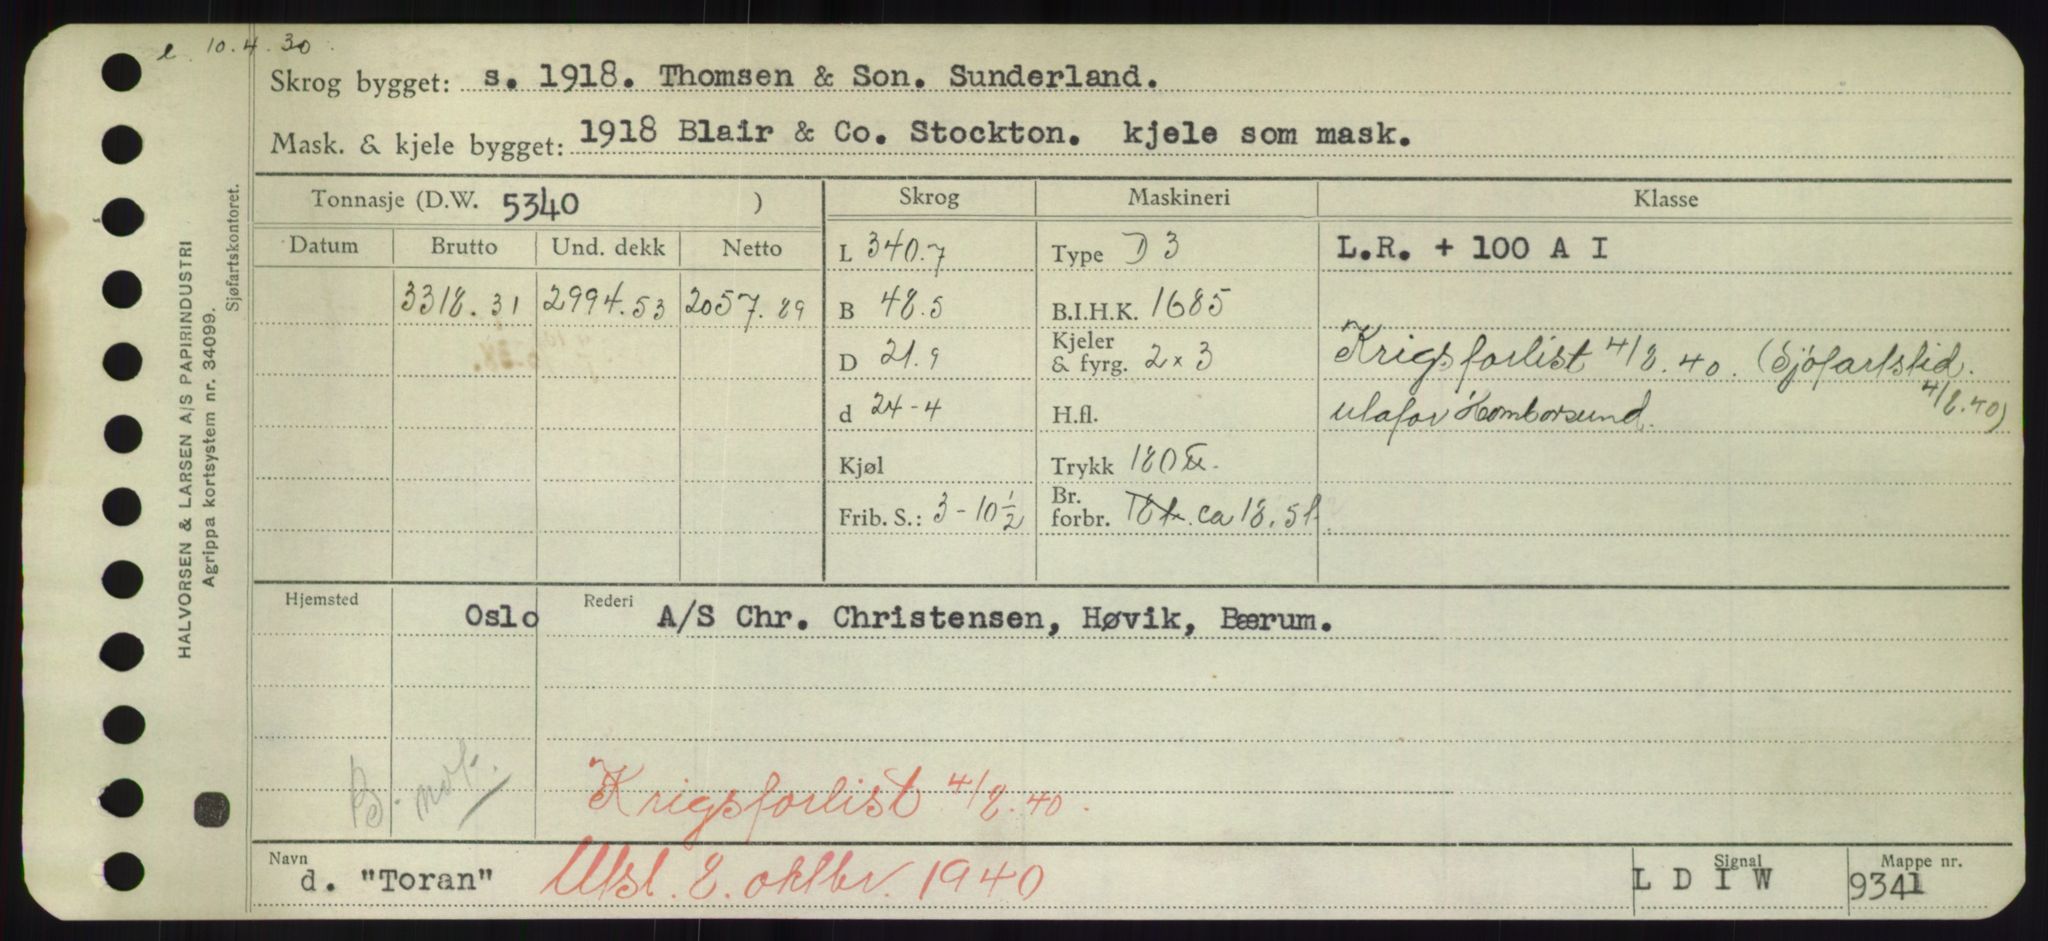 e. 10.4.30
Skrog bygget: s. 1918. Thomsen & Son. Sunderland.
Mask. & kjele bygget: 1918 Blair & Co. Stockton. kjele som mask.
HALVORSEN & LARSEN A/S PAPIRINDUSTRI
Agrippa kortsystem nr. 34099.
Sjøfartskontoret.
Tonnasje (D.W. 5340 ) Skrog Maskineri Klasse
Datum Brutto Und. dekk Netto L 340.7 Type D 3 L.R. + 100 A I
3318.31 2994.53 2057.89 B 48.5 B.I.H.K. 1685
D 21.9 Kjeler & fyrg. 2 x 3 Krigsforlist 4/8.40. (Sjöfartstid.
4/8.40)
d 24-4 H.fl. utafor Homborsund.
Kjøl Trykk 180
Frib. S.: 3-10½ Br. forbr. 18 t. ca 18,5 t.
Hjemsted Oslo Rederi A/S Chr. Christensen, Høvik, Bærum.
B. not.
Krigsforlist 4/8.40.
Navn d. "Toran" Utsl. 8. oktbr. 1940 Signal L D I W Mappe nr. 9341